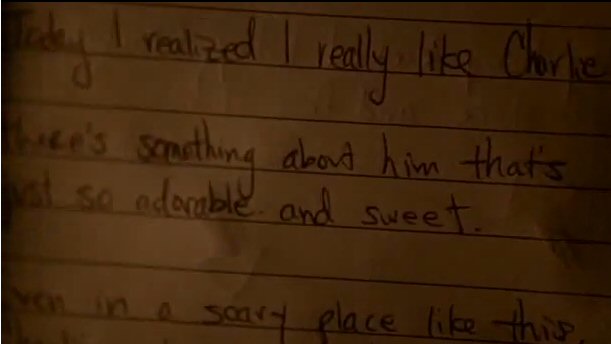 Today I realized I really like Charlie
there's something about him that's
just so adorable and sweet.
even in a scary place like this.